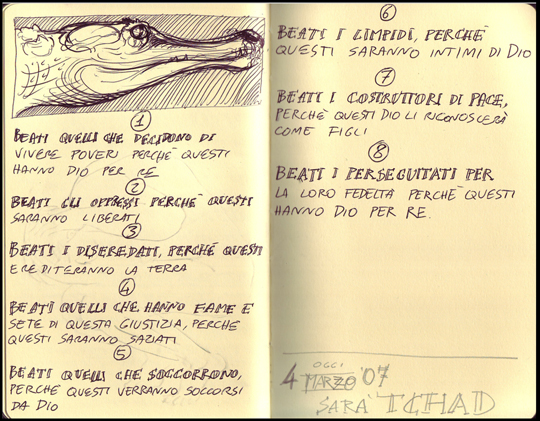 1
BEATI QUELLI CHE DECIDONO DI
VIVERE POVERI PERCHÈ QUESTI
HANNO DIO PER RE
2
BEATI GLI OPPRESSI PERCHÈ QUESTI
SARANNO LIBERATI
3
BEATI I DISEREDATI, PERCHÈ QUESTI
EREDITERANNO LA TERRA
4
BEATI QUELLI CHE HANNO FAME E
SETE DI QUESTA GIUSTIZIA, PERCHÈ
QUESTI SARANNO SAZIATI
5
BEATI QUELLI CHE SOCCORRONO,
PERCHÈ QUESTI VERRANNO SOCCORSI
DA DIO
6
BEATI I LIMPIDI, PERCHÈ
QUESTI SARANNO INTIMI DI DIO
7
BEATI I COSTRUTTORI DI PACE,
PERCHÈ QUESTI DIO LI RICONOSCERÀ
COME FIGLI
8
BEATI I PERSEGUITATI PER
LA LORO FEDELTÀ PERCHÈ QUESTI
HANNO DIO PER RE.
OGGI
4 MARZO '07
SARÀ TCHAD